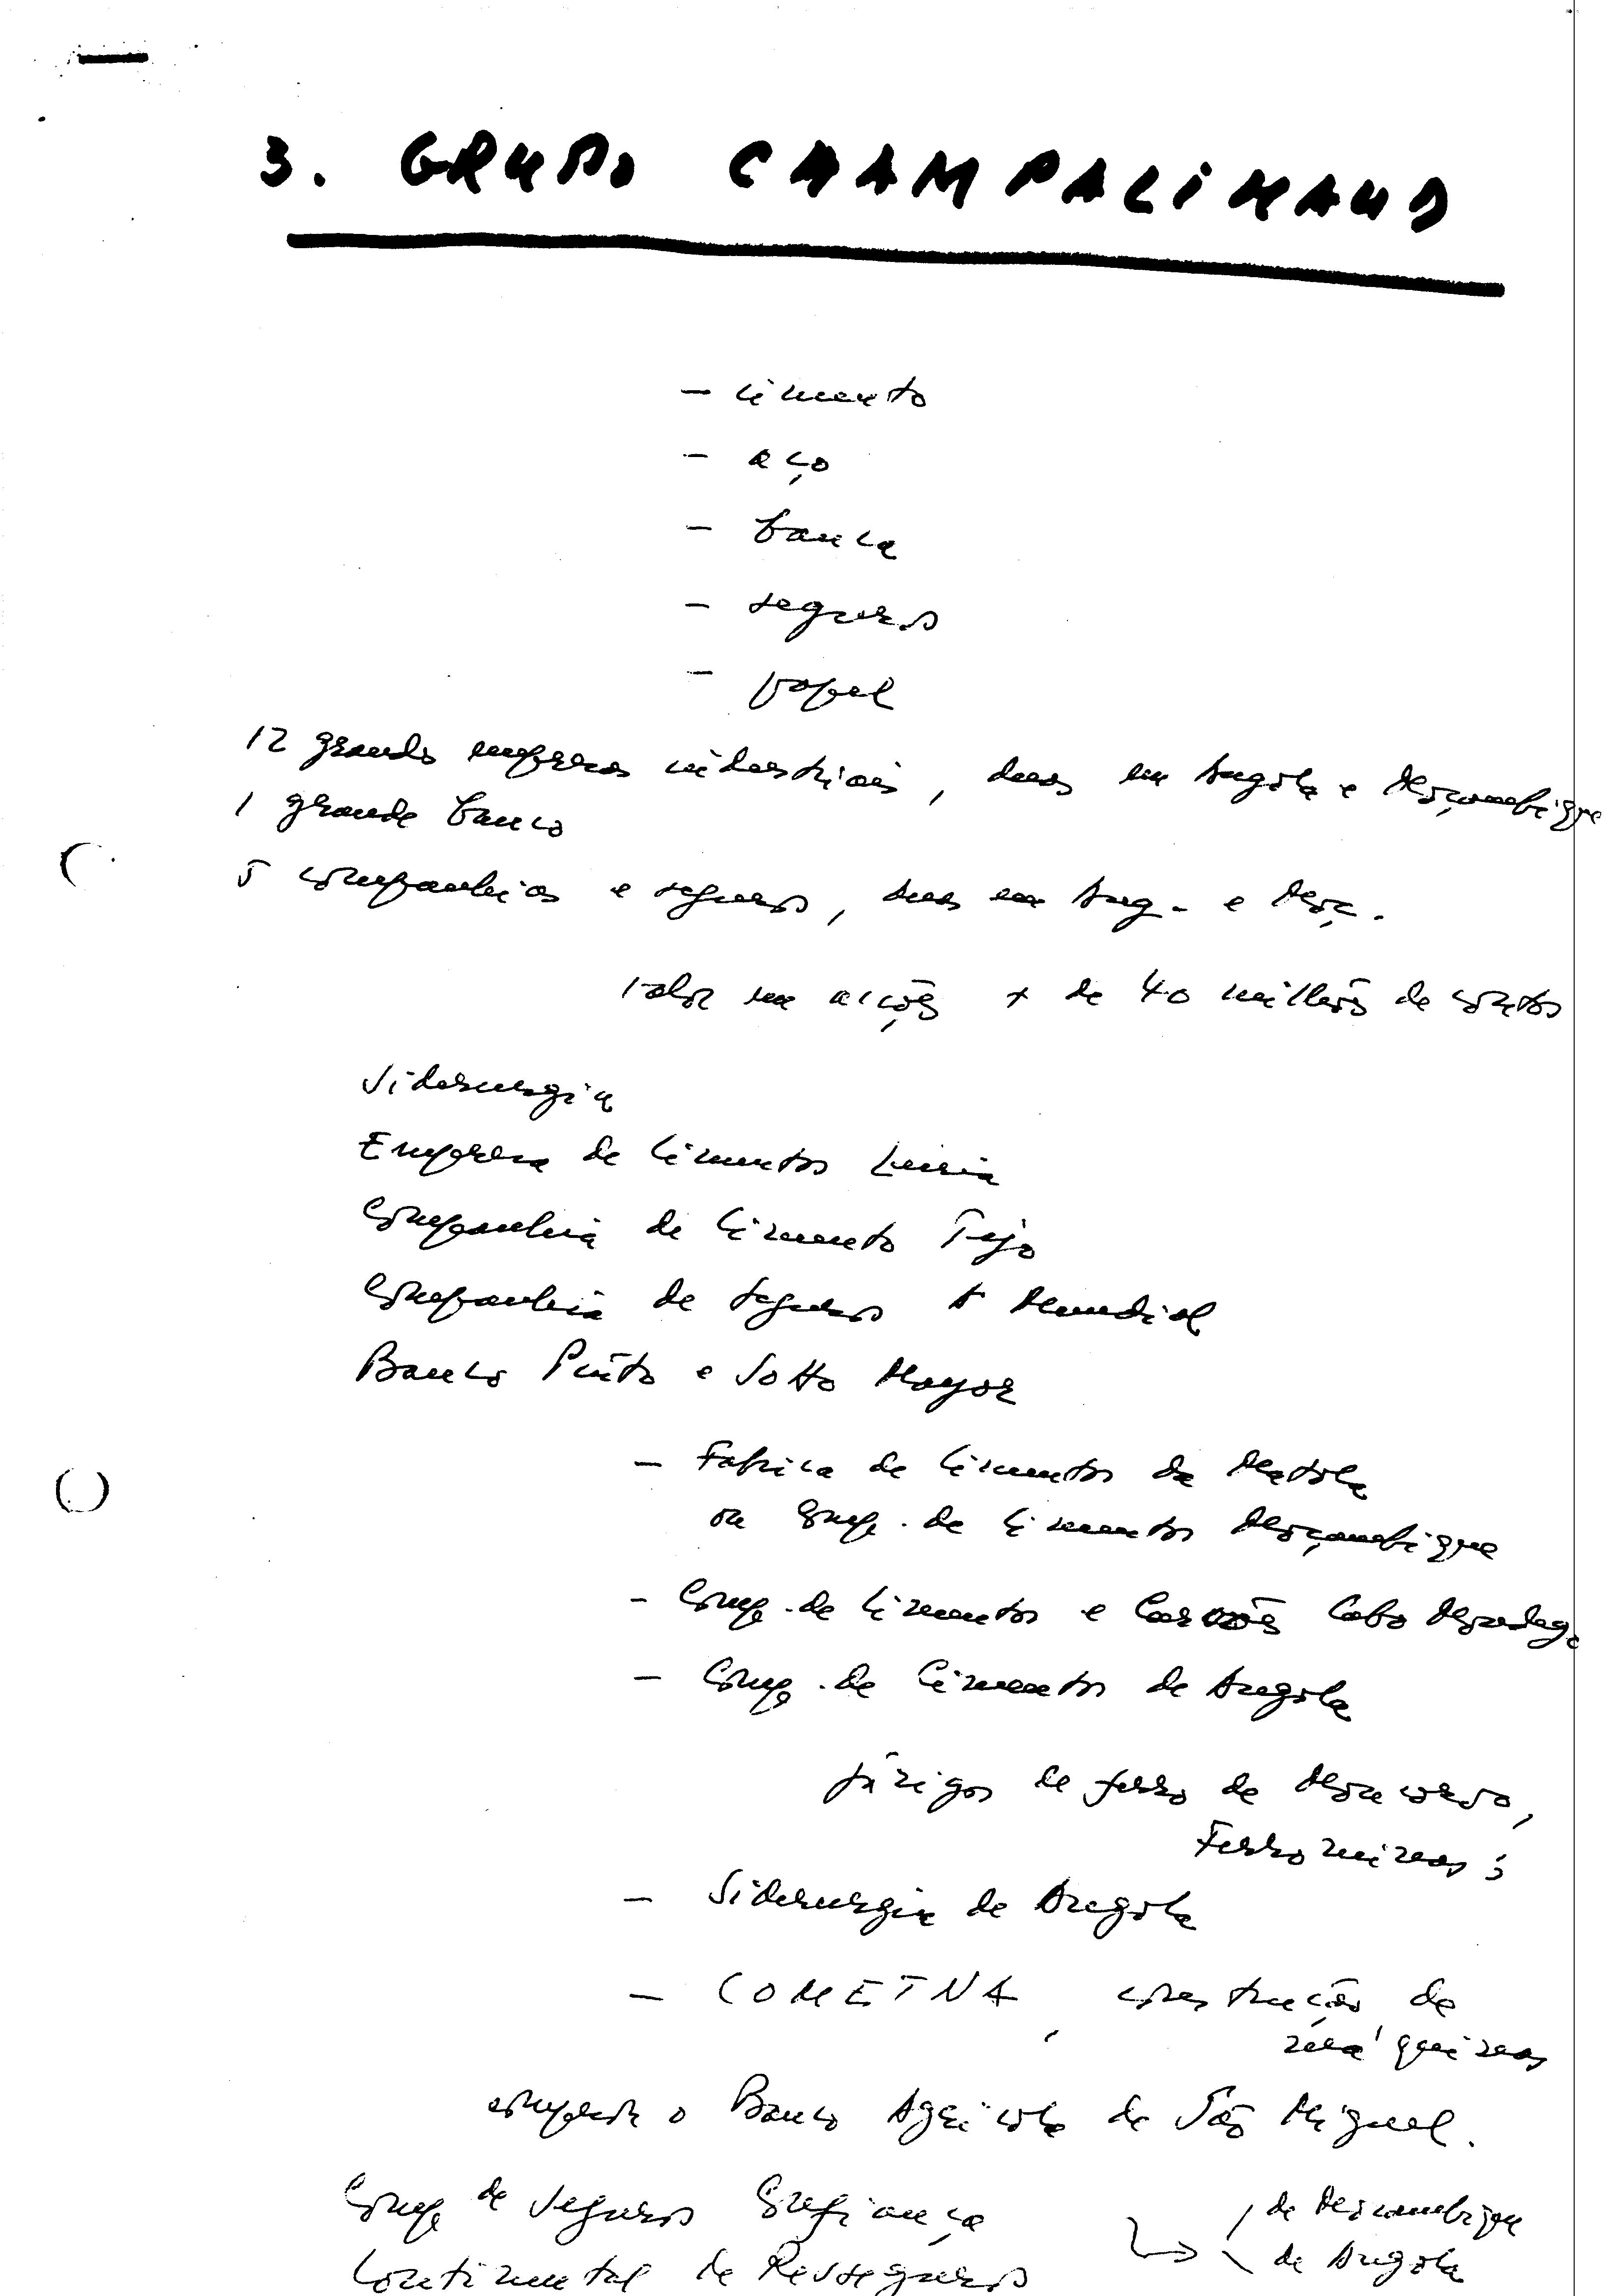 3. GRUPO CHAMPALIMAUD
- cimento
- aço
- banca
- seguros
- papel
12 grandes empresas industriais, duas em Angola e Moçambique
1 grande banco
5 companhias e seguros, duas em Ang. e Moç.
valor em acções + de 40 milhões de contos
Siderurgia
Empresa de Cimentos Leiria
Companhia de Cimento Tejo
Companhia de Seguros A Mundial
Banco Pinto e Sotto Mayor
- Fabrica de Cimentos da Matola
ou Comp. de Cimentos Moçambique
- Comp. de Cimentos e Carvões Cabo Mondego
- Comp. de Cimentos de Angola
jázigos de ferro de Moncorvo,
Ferrominas;
- Siderurgia de Angola
- COMETNA, construção de
máquinas
comprou o Banco Agrícola de São Miguel.
Comp de Seguros Confiança
de Moçambique
Continental de Resseguros
de Angola